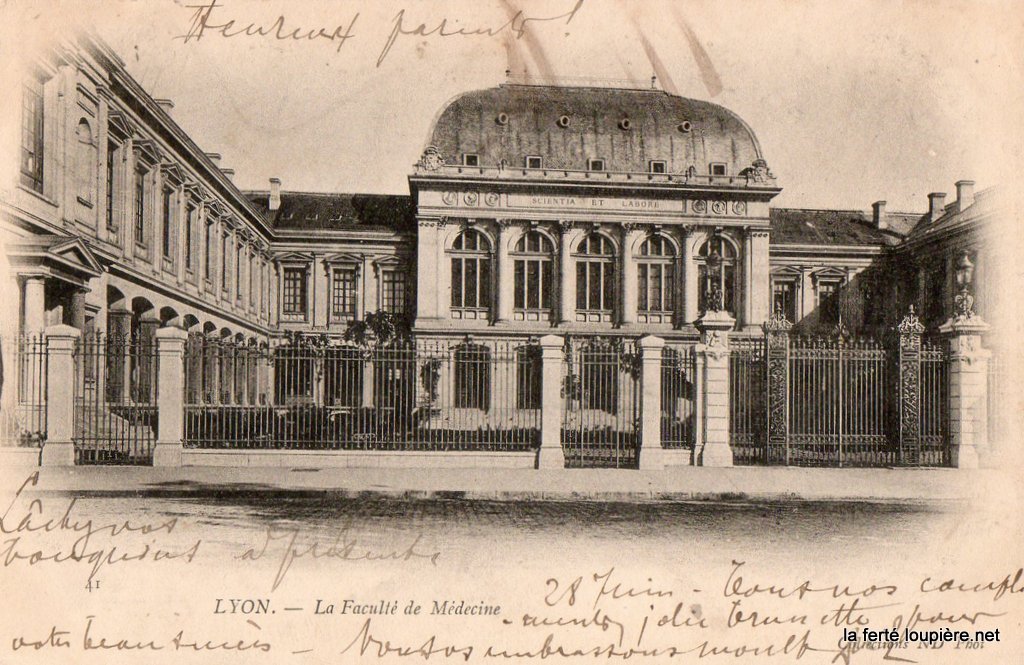 Heureux parents !
SCIENTIA ET LABORE
Lâchez vos
bouquins à présent.
41
LYON. — La Faculté de Médecine
28 Juin - Tous nos compli
-ments, jolie brunette, pour
votre beau succès - Nous vous embrassons
la ferté loupière.net
Collections ND Phot